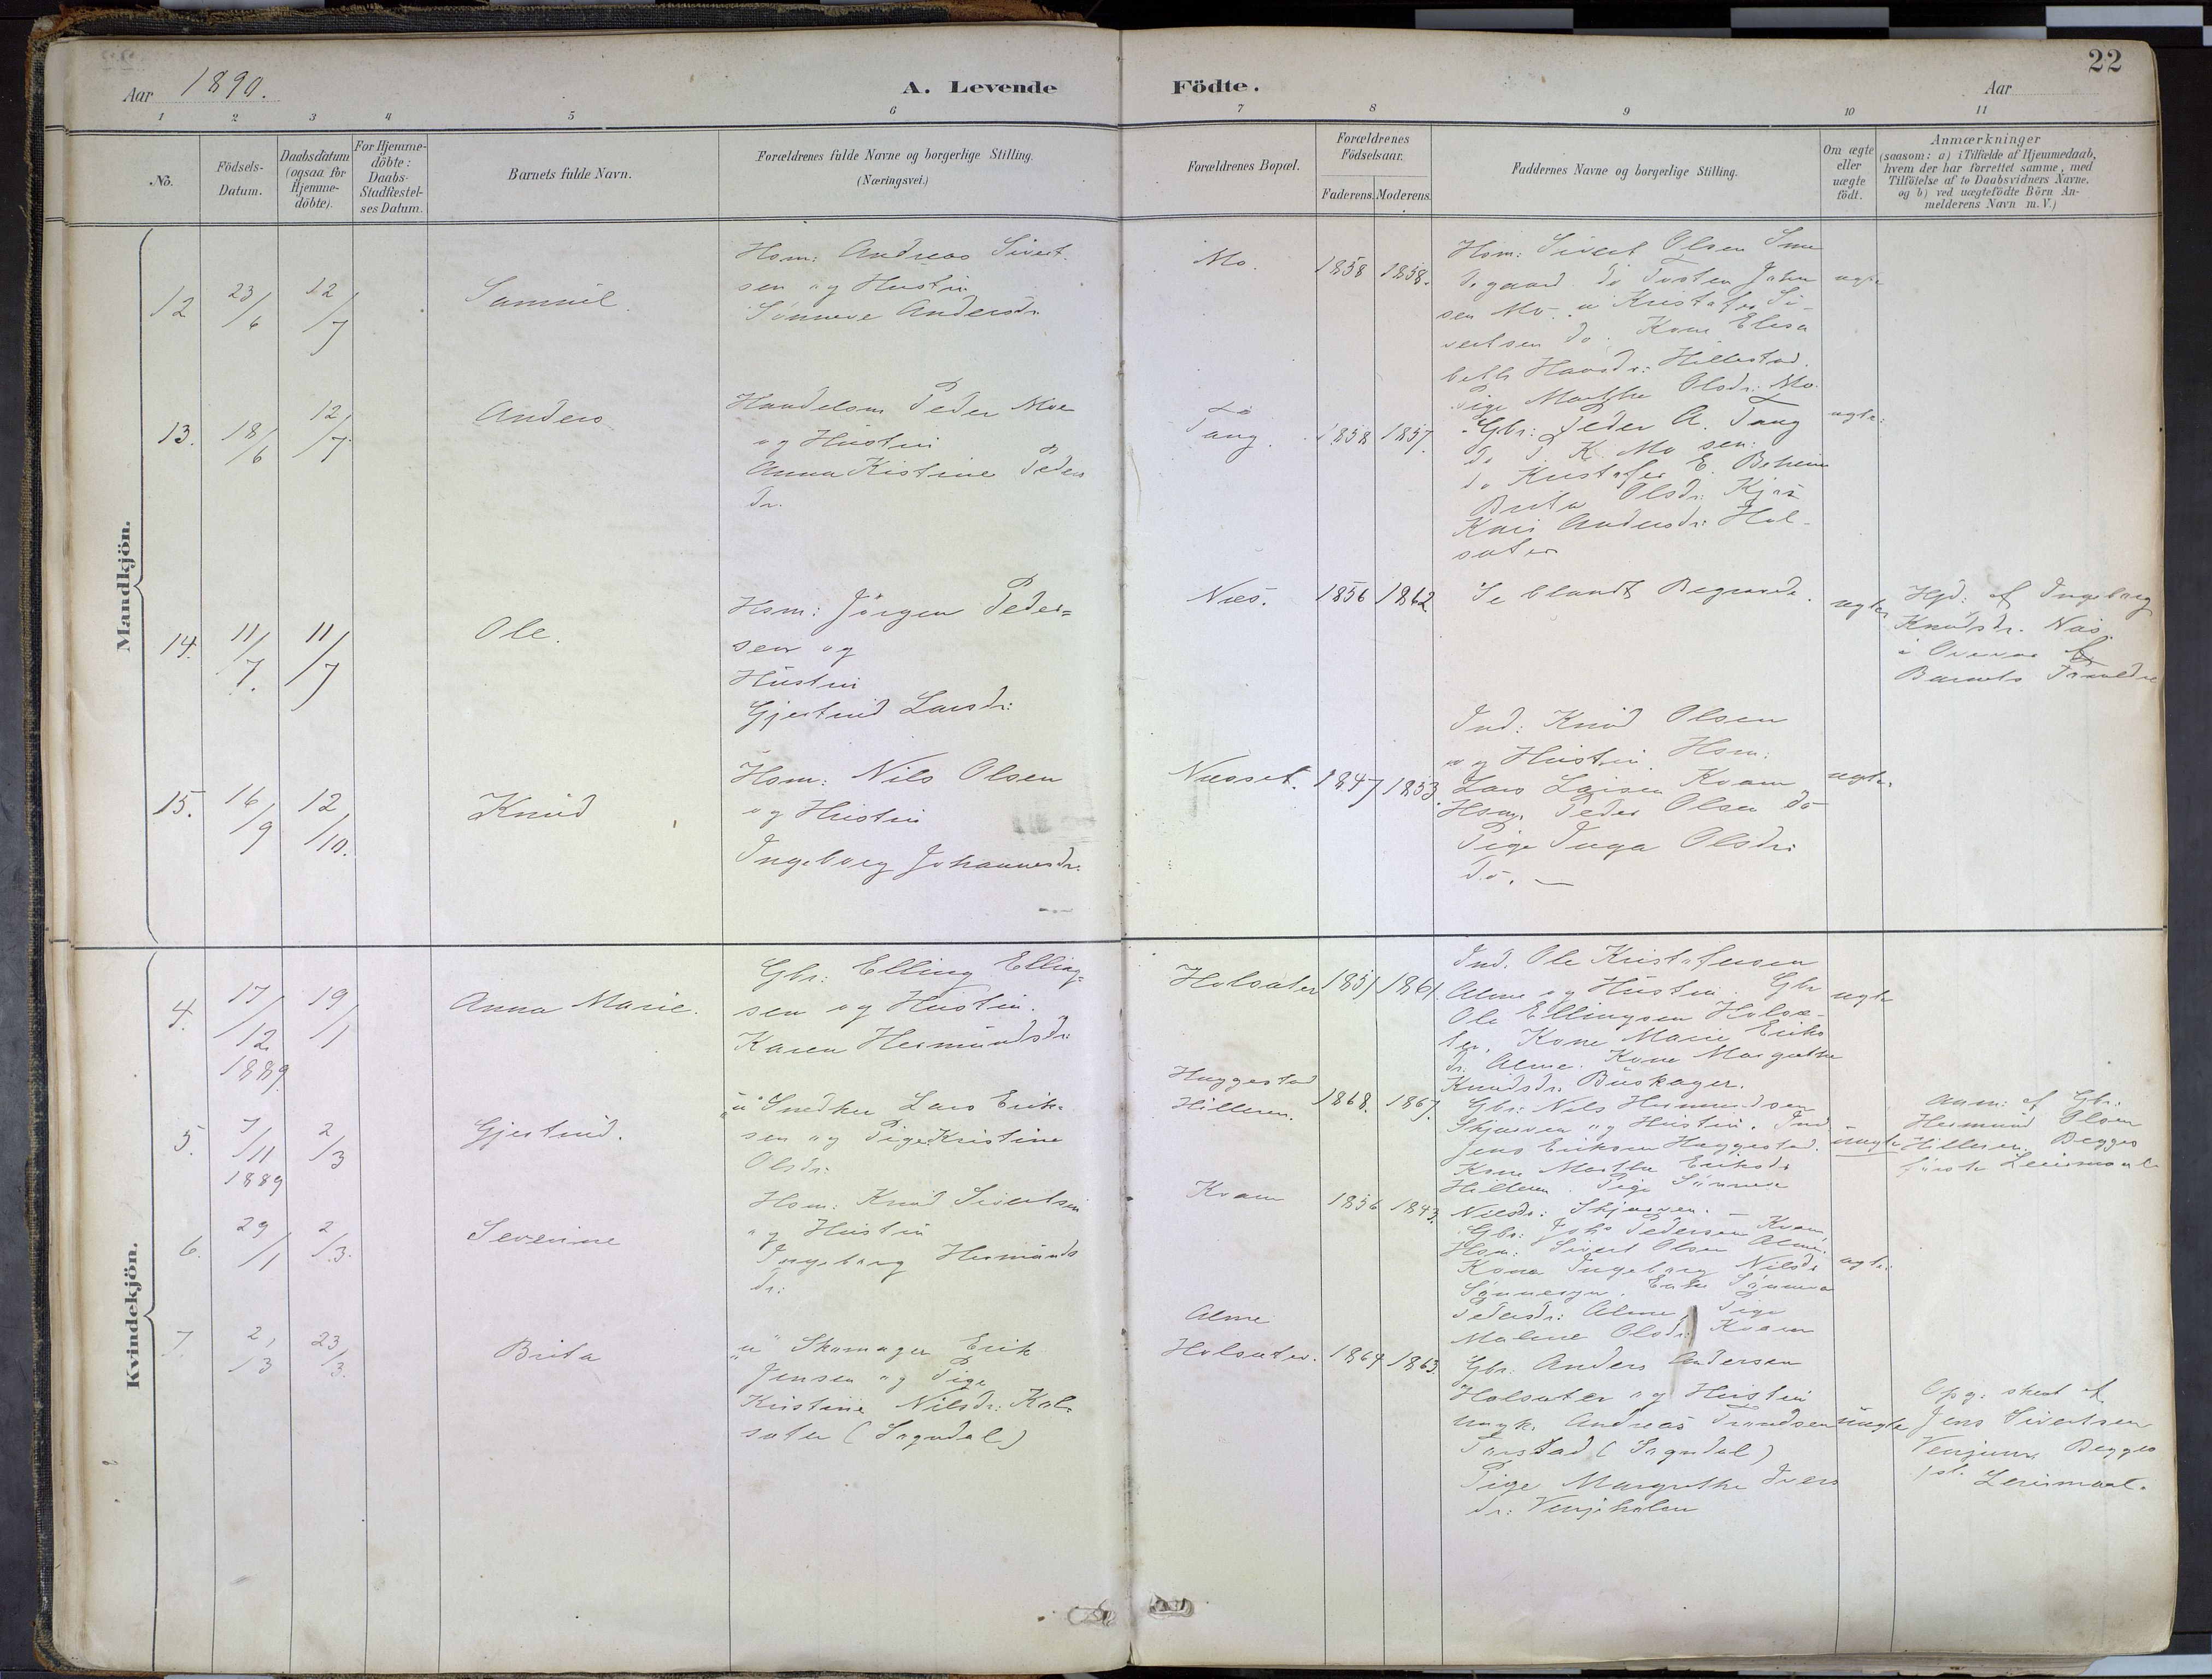 22
Aar 1890.
A. Levende Födte.
Aar
1 2 3 4 5 6 7 8 9 10 11
No.
Födsels-Datum.
Daabsdatum (ogsaa for Hjemme-döbte).
For Hjemme-döbte: Daabs-Stadfæstel-ses Datum.
Barnets fulde Navn.
Forældrenes fulde Navne og borgerlige Stilling.
(Næringsvei.)
Forældrenes Bopæl.
Forældrenes Födselsaar.
Faderens. Moderens.
Faddernes Navne og borgerlige Stilling.
Om ægte eller uægte födt.
Anmærkninger
(saasom: a) i Tilfælde af Hjemmedaab,
hvem der har forrettet samme, med
Tilföielse af to Daabsvidners Navne,
og b) ved uægtefödte Börn An-
melderens Navn m. V.)
Mandkjön.
12 23/6 12/7
Samuel.
Hsm: Andreas Sivert-
sen og Hustru
Sönneve Andersdr.
Mo. 1858 1858.
Hsm: Sivert Olsen
do Tosten John
sen Mo. Kristofer Si-
vertsen do. Kone Elisa
beth Hansdr: Hillestad.
Pige Marthe Olsdr: Mo.
ægte
13. 18/6 12/7
Anders
Handelsm Peder Moe
og Hustru
Anna Kistine Peders
dr.
Tang. 1858 1857.
Gbr: Peder A. Tang
do P. K. Mo sen:
do Kristofer E.
Brita Olsdr: Kjös
Kari Andersdr: Hol-
sæter
ægte:
14. 11/7. 11/7
Ole.
Hsm: Jörgen Peder=
sen og
Hustru
Gjertrud Larsdr:
Næs. 1856 1862
Se blandt Begravede.
ægte
Hjd: af Ingeborg
Knudsdr. Næs.
i Overvær af
Barnets Forældre
15. 16/9 12/10.
Knud
Hsm: Nils Olsen
og Hustru
Ingeborg Johannesdr.
Næsset. 1847 1853.
Ind: Knud Olsen
og Hustru. Hsm:
Lars Larsen Kvam
Hsm. Peder Olsen do
Pige Inga Olsdr:
do. —
ægte.
Kvindekjön.
4. 17/12 1889 19/1
Anna Marie.
Gbr: Elling Elling-
sen og Hustru.
Karen Hermundsdr:
Holsæter 1851 1861.
Ind. Ole Kristofersen
Alme og Hustru. Gbr
Ole Ellingsen Holsæ-
ter. Kone Marie Eriks
dr. Alme. Kone Margrethe
Knudsdr. Buskager.
ægte
5. 7/11 1889 2/3
Gjertrud.
"u" Snedker Lars Erik-
sen og Pige Kristine
Olsdr:
Haggestad
Hilleren. 1868. 1867.
Gbr: Nils Hermundsen
Skjerven og Hustru. Ind
Jens Eriksen Haggestad.
Kone Marthe Eriksdr
Hilleren. Pige Sönneva
Nilsdr: Skjerven. —
uægte
Anm: af Gbr.
Hermund Olsen
Hilleren. Begges
første Leiermaal
6. 29/1 2/3.
Severine
Hsm: Knud Sivertsen
og Hustru
Ingeborg Hermunds
dr:
Kvam 1856 1843.
Gbr: Johs Pedersen Kvam,
Hsm: Sivert Olsen Alme.
Kone Ingeborg Nilsdr
Enke Sönneva
Pedersdr: Alme, Pige
Malene Olsdr: Kvam
ægte.
7. 2/3 23/3.
Brita
"u" Skomager Erik
Jensen og Pige
Kristine Nilsdr: Hol-
sæter (Sogndal)
Alme
Holsæter. 1864 1863.
Gbr. Anders Andersen
Holsæter og Hustru
Ungk. Andreas Trondsen
(Sogndal)
Pige Margrethe Ivers
dr: Venjehalen
uægte
Opg: skedt af
Jens Sivertsen
Venjum. Begges
1st. Leiermaal.